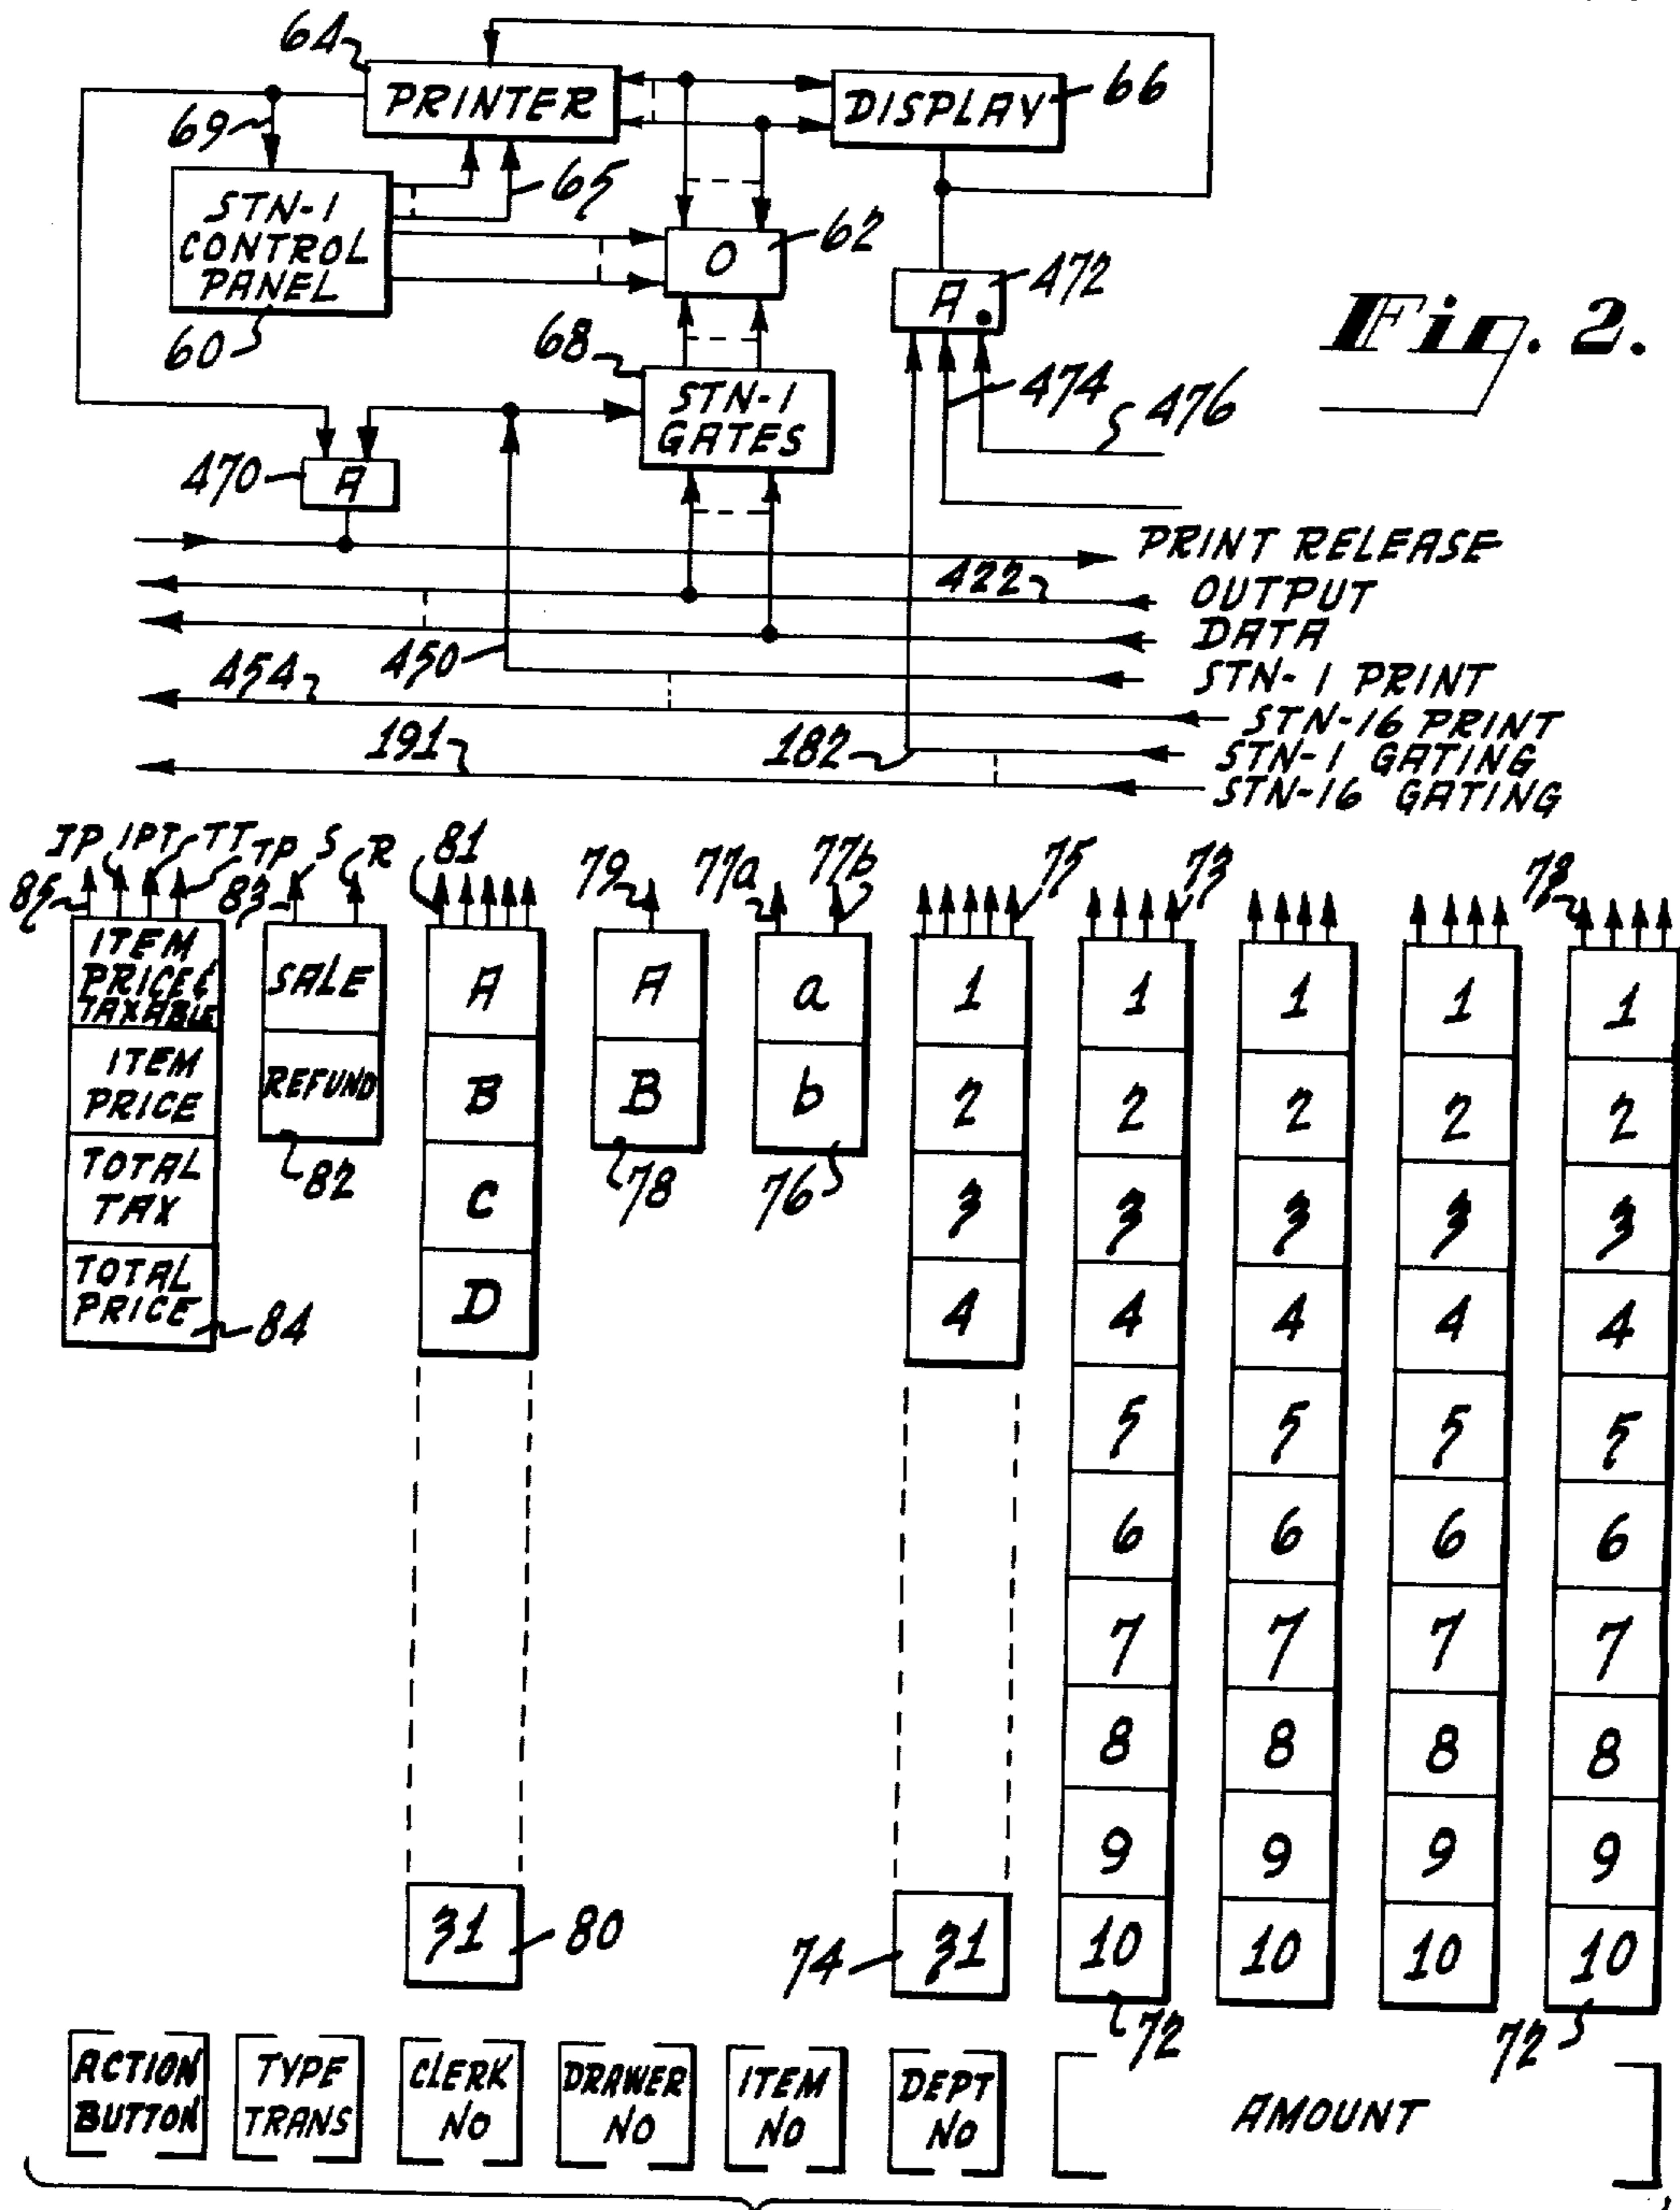 64
PRINTER
DISPLAY
66
69
65
STN-1
CONTROL
PANEL
60
O
62
A
472
Fig. 2.
68
STN-1
GATES
474
476
470
A
PRINT RELEASE
422
OUTPUT
DATA
450
STN-1 PRINT
454
STN-16 PRINT
191
182
STN-1 GATING
STN-16 GATING
IP IPT TT TP S R 81 79 77a 77b 75 73 73
85 83
ITEM
PRICE &
TAXABLE
ITEM
PRICE
TOTAL
TAX
TOTAL
PRICE
84
SALE
REFUND
82
A
B
C
D
31
80
A
B
78
a
b
76
1
2
3
4
31
74
1 1 1 1
2 2 2 2
3 3 3 3
4 4 4 4
5 5 5 5
6 6 6 6
7 7 7 7
8 8 8 8
9 9 9 9
10 10 10 10
72 72
ACTION
BUTTON
TYPE
TRANS
CLERK
NO
DRAWER
NO
ITEM
NO
DEPT
NO
AMOUNT